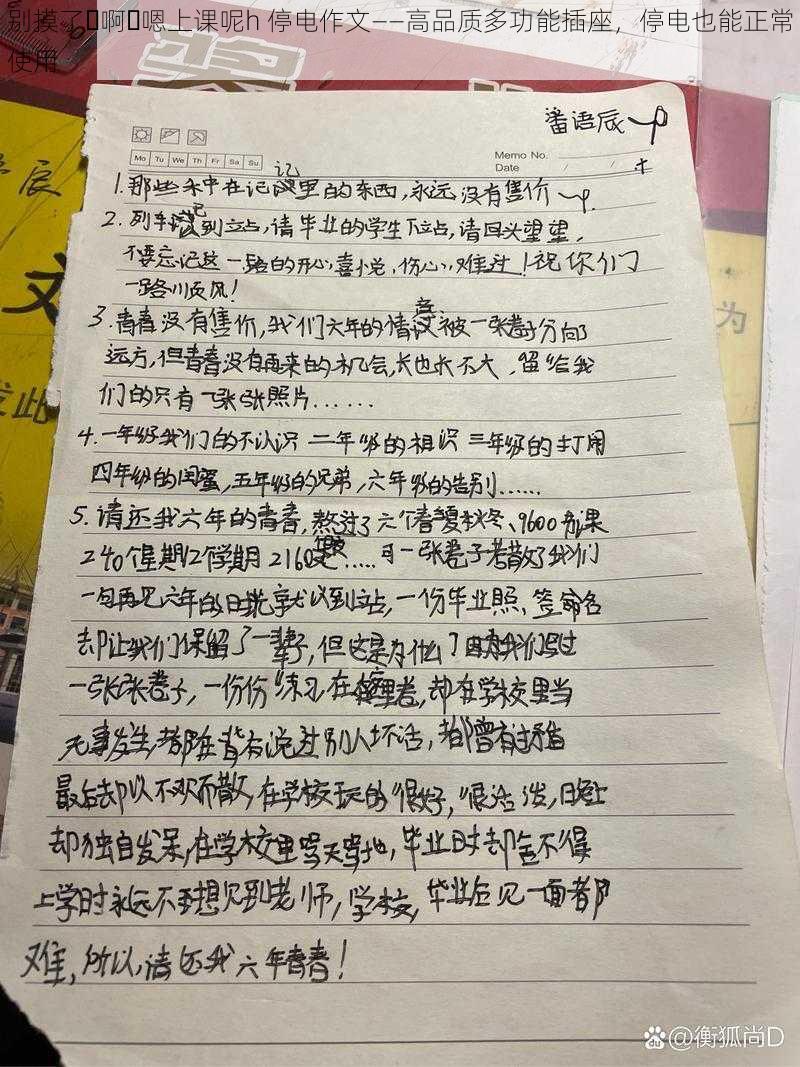 别摸了▯啊▯嗯上课呢h 停电作文——高品质多功能插座，停电也能正常
使用
潘语辰
Memo No.
Mo Tu We Th Fr Sa Su
Date / /
记
1.那些永中在记里的东西,永远没有售价
2.列车到立占,请毕业的学生下立占,请回头望望,
不要忘记这一路的开心,喜悦,伤心,难过!祝你们
一路川页风!
3.青春没有售价,我们六年的情被一张卷子分向
远方,但青春没有再来的机会,长也长不大,留给我
们的只有一张张照片......
4.一年级我们的不认识 二年级的相识 三年级的打闹
四年级的闺蜜,五年级的兄弟,六年级的告别......
5.请还我六年的青春,熬过了六个春夏秋冬、9600节课
240个星期12个学期2160.....可一张卷子若散了我们
一句再见六年的日光就以到立占,一份毕业照,签命名
却让我们保留了一辈子,但这是为什么?因为我们写过
一张张卷子,一份份练习在里卷,却在学校里当
无事发生,都在背有说过别人坏话,都曾有过矛盾
最后却以不欢而散,在学校玩的很好,很活泼,日晚上
却独自发呆,在学校里骂天骂地,毕业时却舍不得
上学时永远不想见到老师,学校,毕业后见一面都
难,所以,请还我六年青春!
为
文
发此
辰
@衡狐尚D